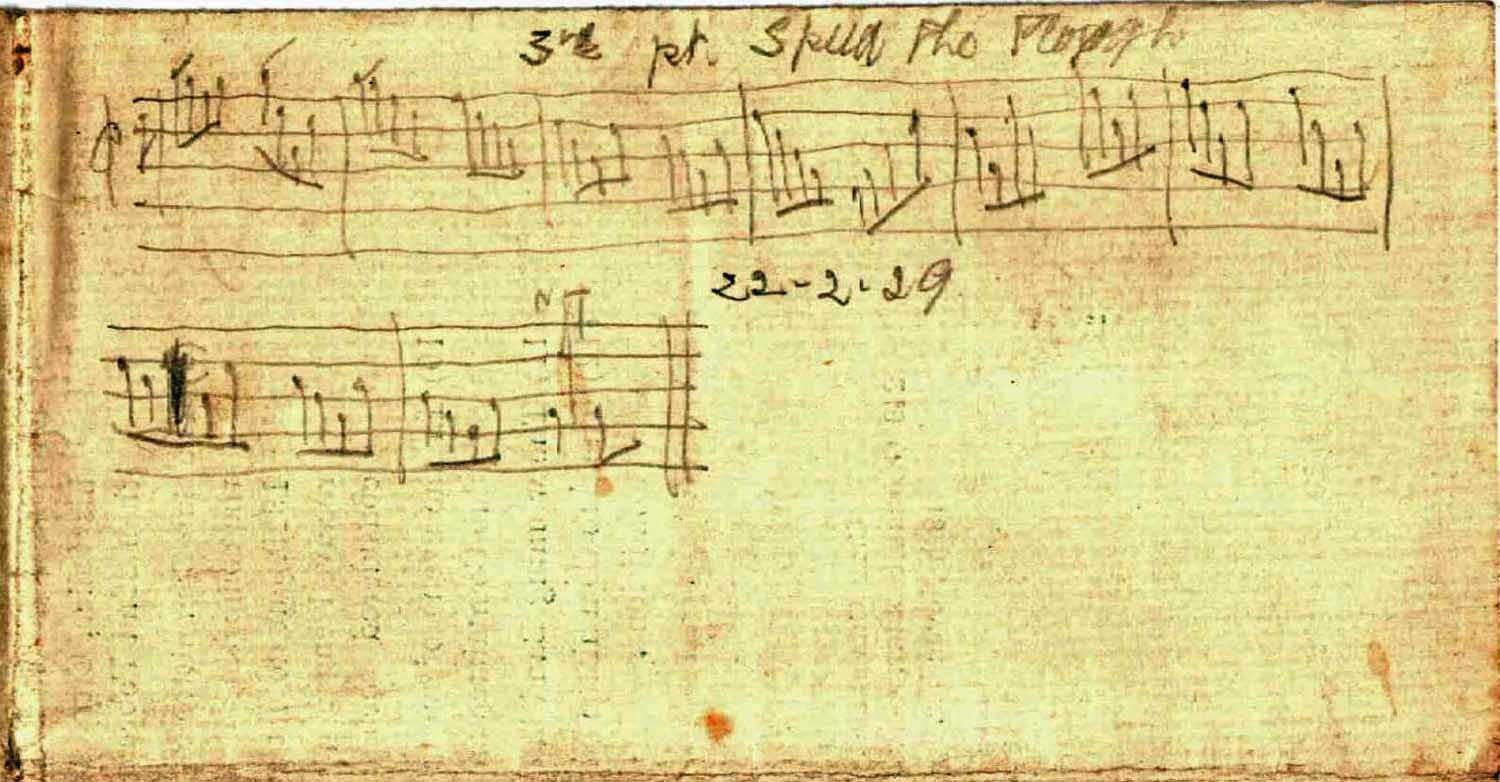 3rd pt. Speed the Plough
22-2-29